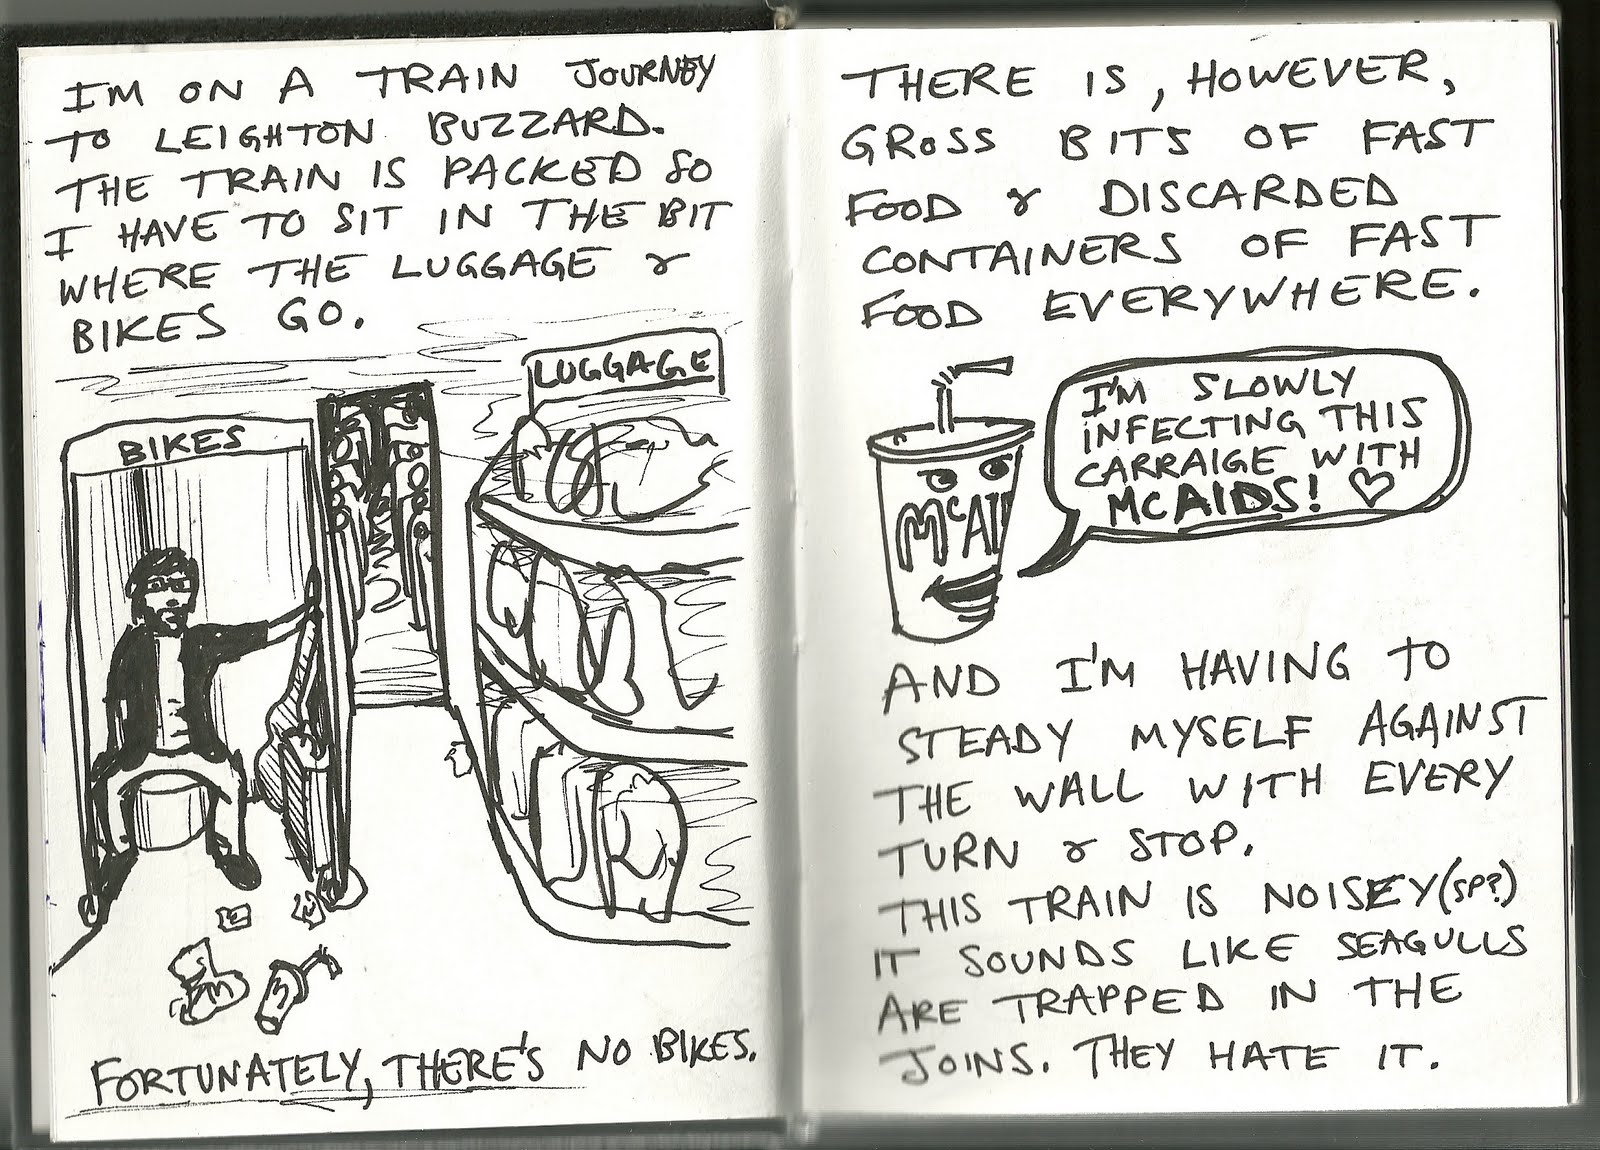 I'M ON A TRAIN JOURNEY
TO LEIGHTON BUZZARD.
THE TRAIN IS PACKED SO
I HAVE TO SIT IN THE BIT
WHERE THE LUGGAGE &
BIKES GO.
LUGGAGE
BIKES
FORTUNATELY, THERE'S NO BIKES.
THERE IS, HOWEVER,
GROSS BITS OF FAST
FOOD & DISCARDED
CONTAINERS OF FAST
FOOD EVERYWHERE.
I'M SLOWLY
INFECTING THIS
CARRAIGE WITH
MCAIDS! ♡
McAI
AND I'M HAVING TO
STEADY MYSELF AGAINST
THE WALL WITH EVERY
TURN & STOP.
THIS TRAIN IS NOISEY (SP?)
IT SOUNDS LIKE SEAGULLS
ARE TRAPPED IN THE
JOINS. THEY HATE IT.